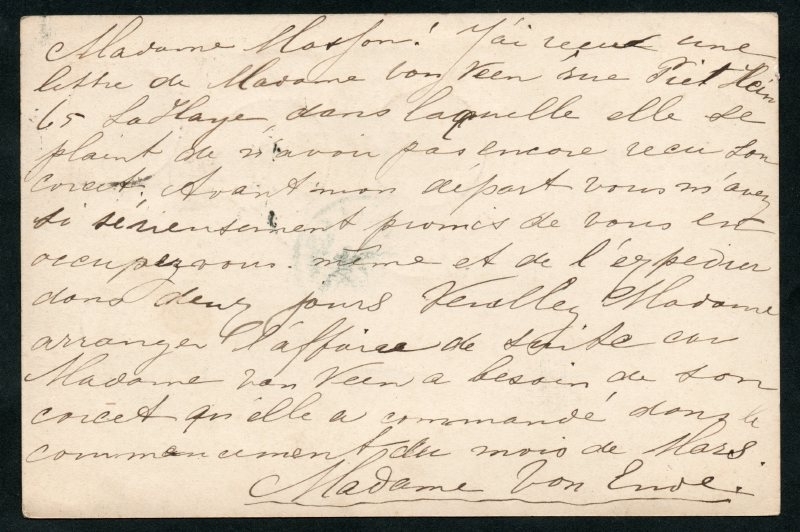 Madame Masson! J'ai reçue une
lettre de Madame von Veen rue Piet Hein
65 La Haye dans laquelle elle se
plaint de n'avoir pas encore recu son
corcet. Avant mon départ vous m'avez
si sérieusement promis de vous en
occupez vous même et de l'expedier
dans deux jours Veuillez Madame
arranger l'affaire de suite car
Madame von Veen a besoin de son
corcet qu'elle a commandé dans le
commencement du mois de Mars.
Madame von Ende.